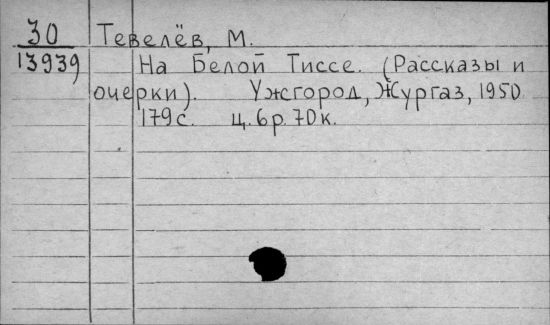 30 Тевелёв, М.
13939 На Белой Тиссе. (Рассказы и
очерки). Ужгород, Жургаз, 1950
179 с. ц. 6 р. 70 к.